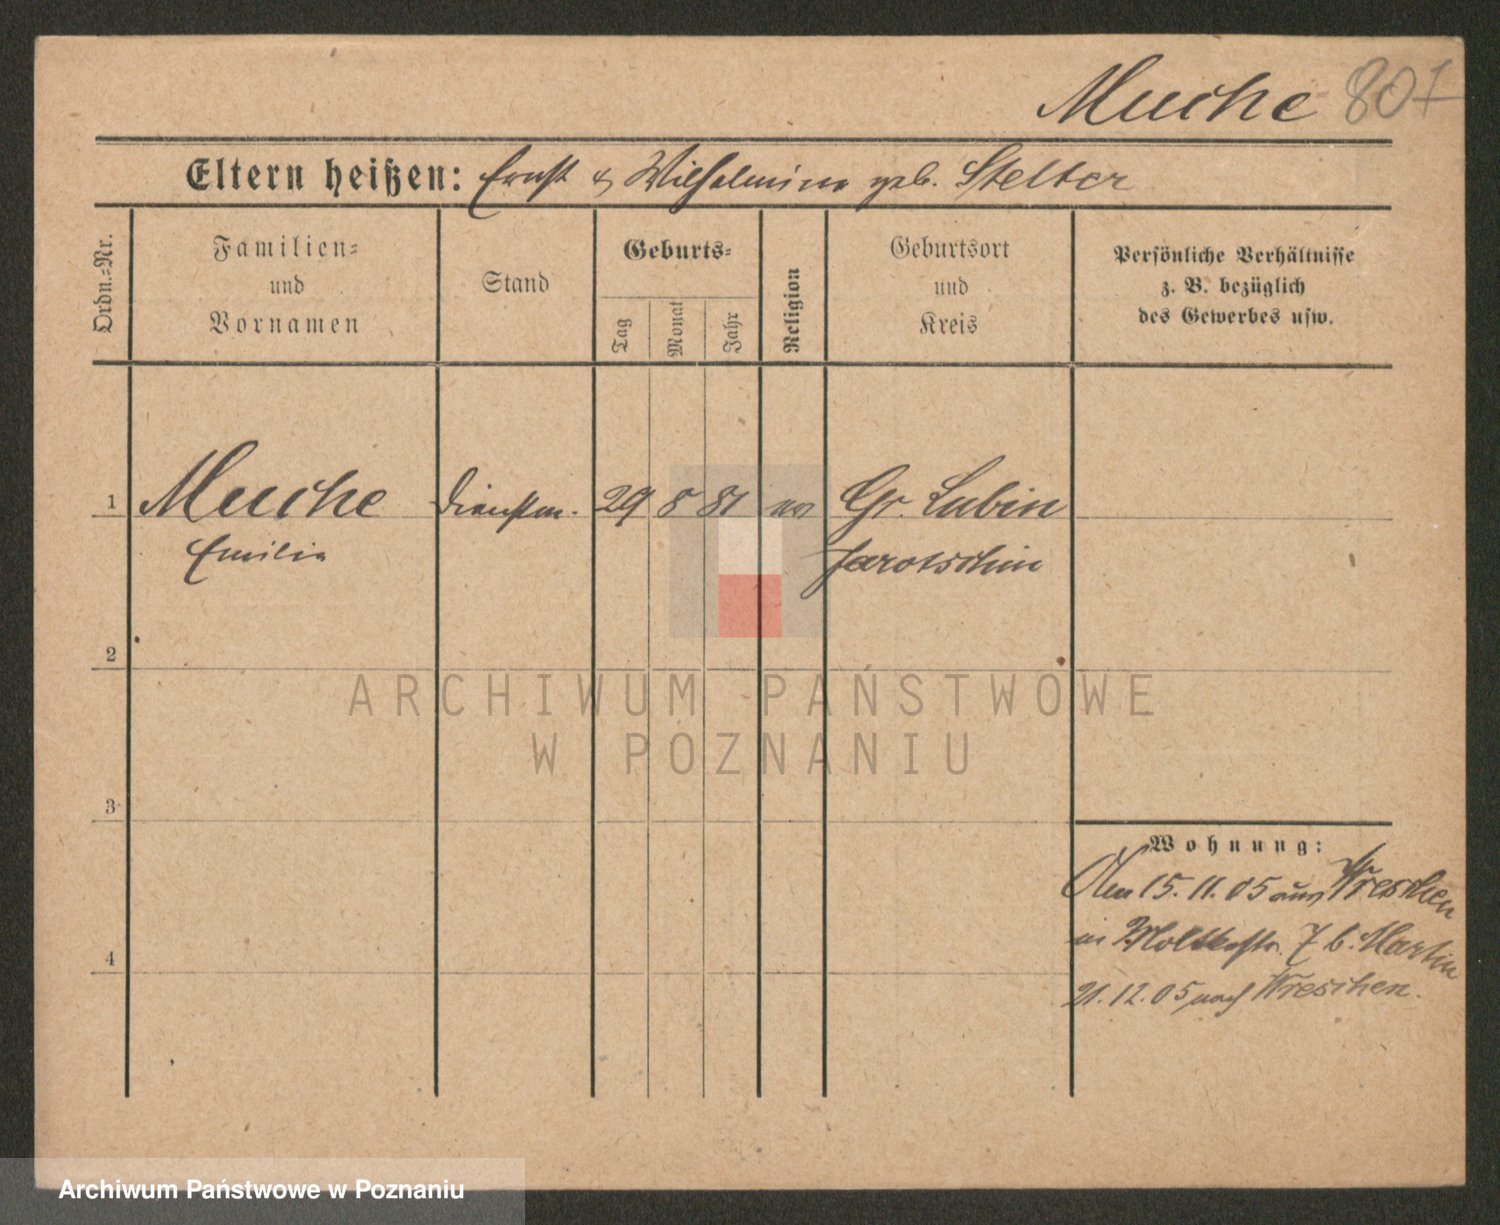 Muche 807
Eltern heißen: Ernst & Wilhelmine geb. Stelter
Ordn.=Nr.
Familien=
und
Vornamen
Stand
Geburts=
Tag
Monat
Jahr
Religion
Geburtsort
und
Kreis
Persönliche Verhältnisse
z. B. bezüglich
des Gewerbes usw.
1 Muche Dienstm. 29 8 81 ev Gr. Lubin
Emilie Jarotschin
2
ARCHIWUM PAŃSTWOWE
W POZNANIU
3
Wohnung:
Den 15.11.05 aus Wreschen
in Moltkestr. 7 b. Martin
4
21.12.05 nach Wreschen.
Archiwum Państwowe w Poznaniu